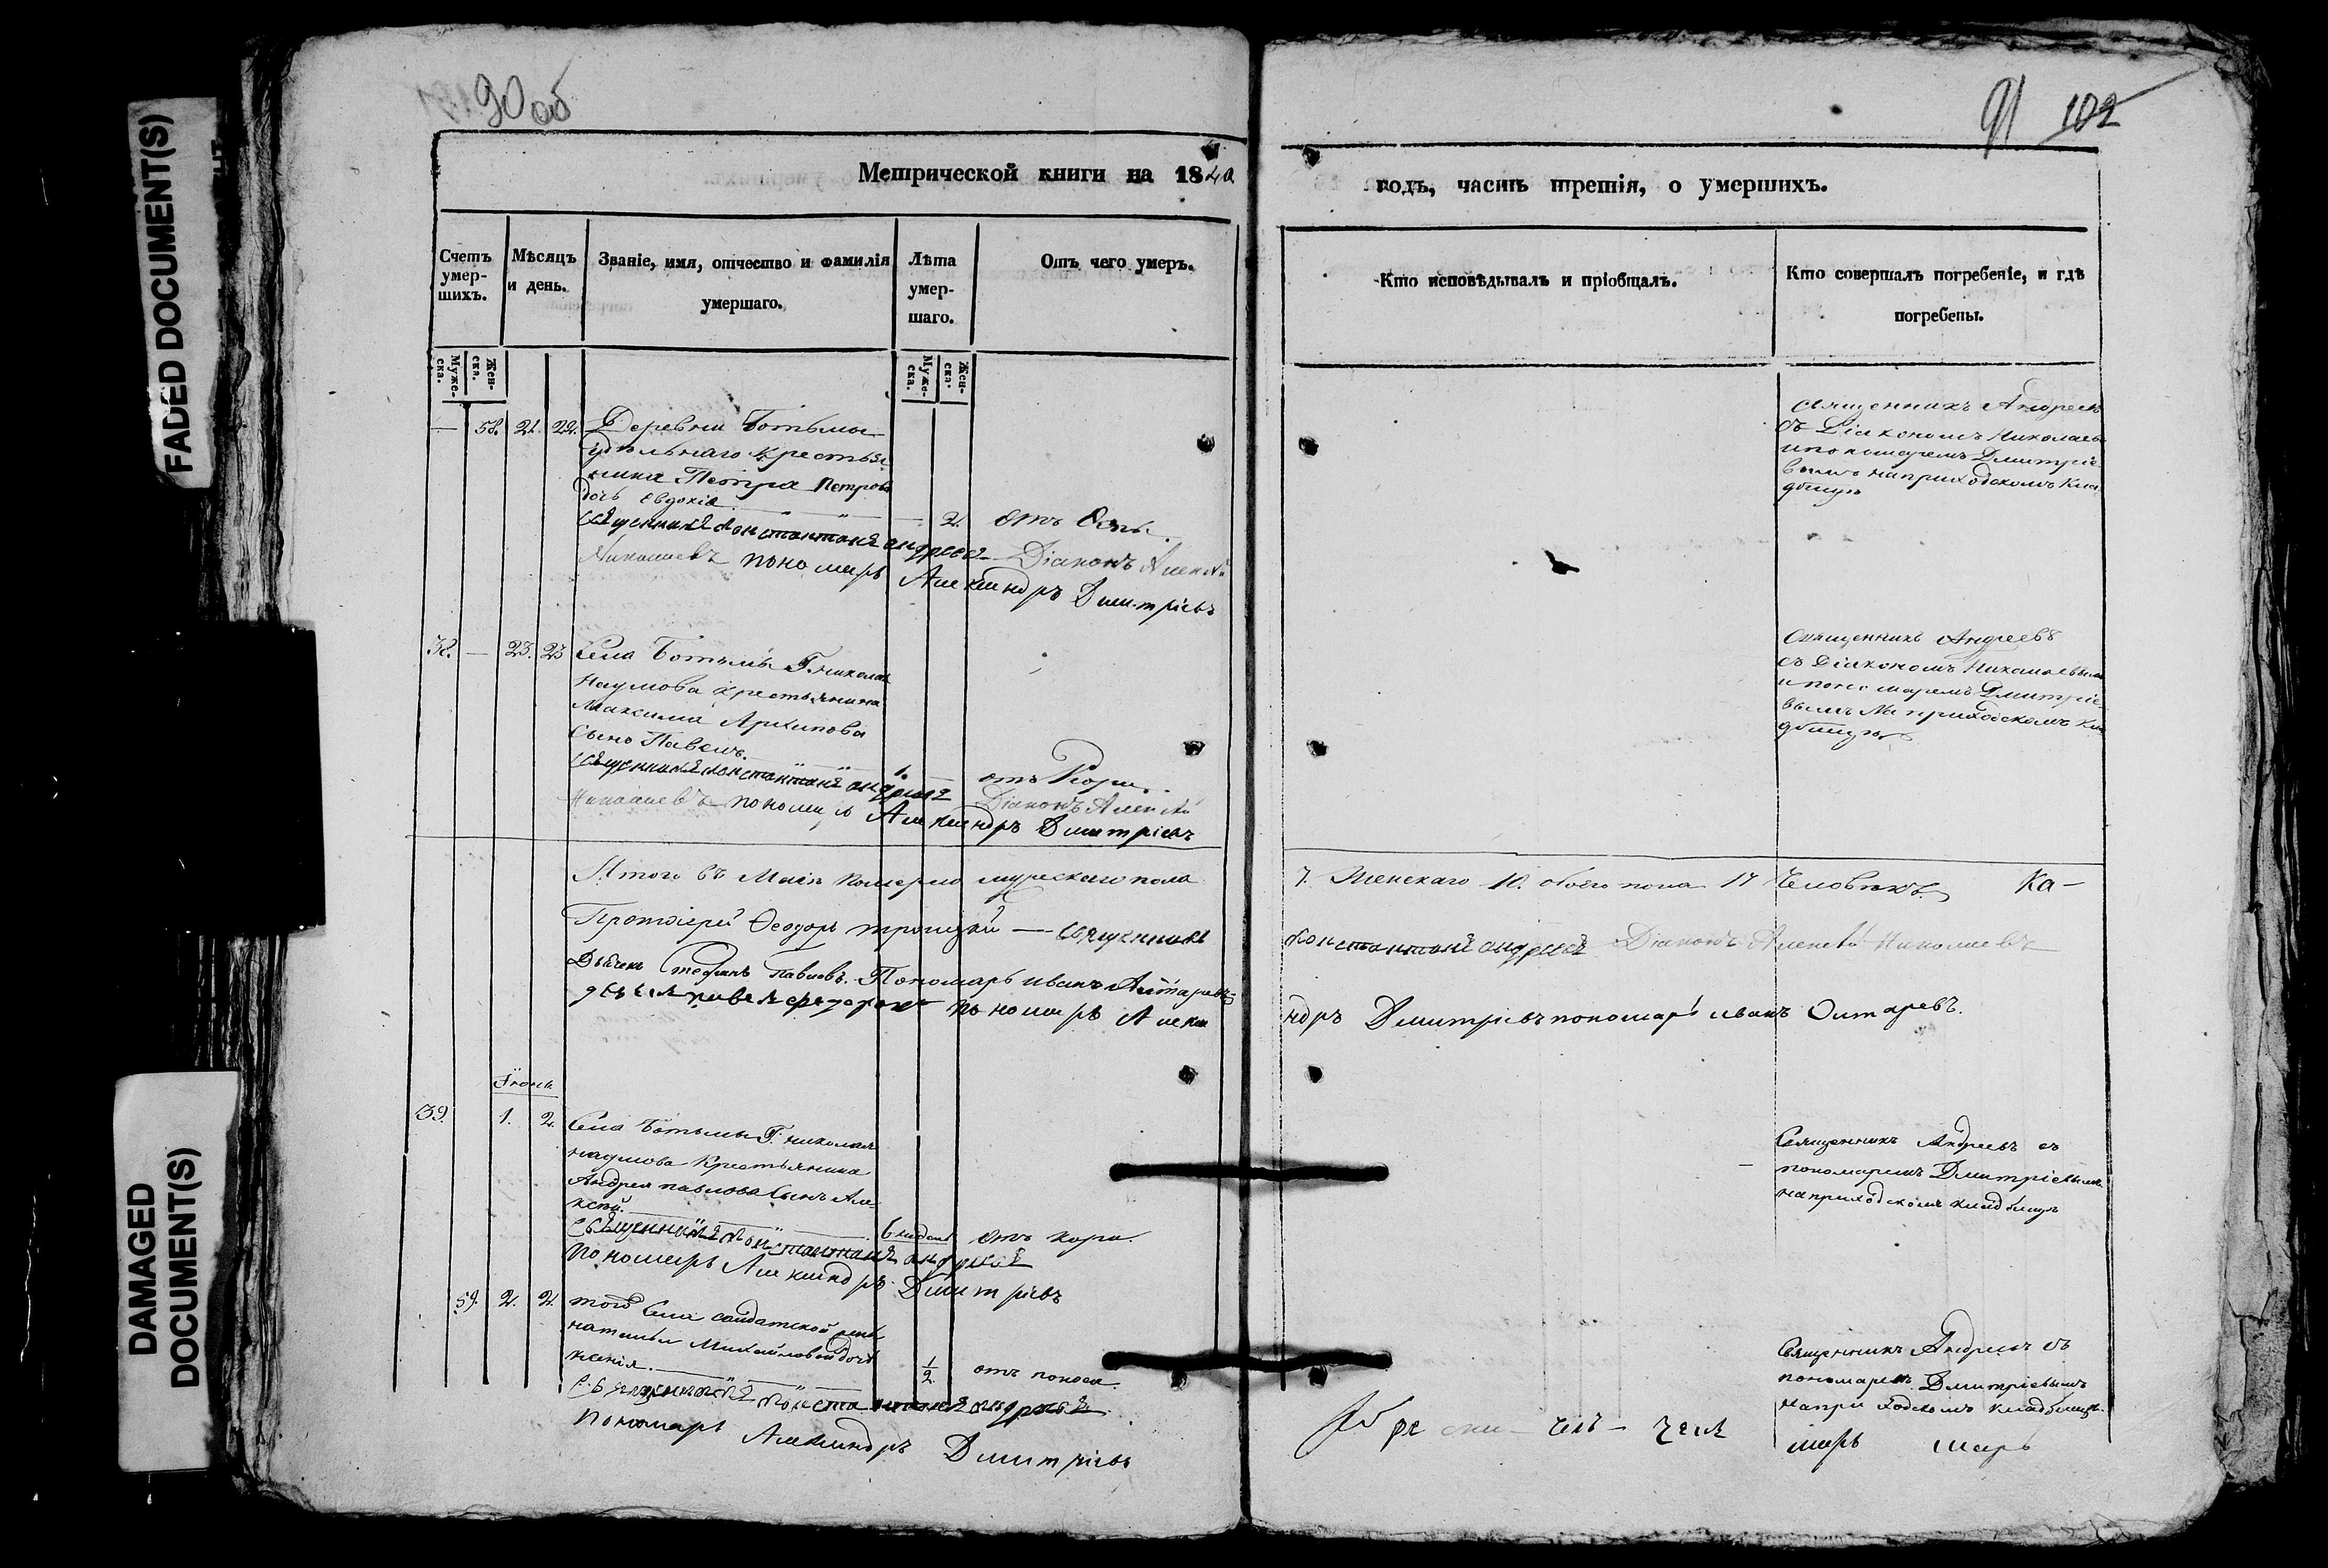 FADED DOCUMENT(S)
DAMAGED
DOCUMENT(S)
90 об
Метрической книги на 1840
Счетъ
умер-
шихъ.
Мѣсяцъ
и день.
Званіе, имя, отчество и фамилія
умершаго.
Лѣта
умер-
шаго.
Отъ чего умеръ.
Муже-
ска.
Жен-
ска.
Муже-
ска.
Жен-
ска.
— 58. 21. 22. Деревни Ботьмы
удѣльнаго крестья
нина Петра Петрова
дочь Евдокія
— 2. отъ оспы.
Священникъ Константинъ Андреевъ Діаконъ Алексѣй
Николаевъ пономарь Александръ Дмитріевъ
38. — 23. 25 Села Ботьмы Г. Николая
Наумова крестьянина
Максима Архипова
сынъ Павелъ.
1. — отъ Кори.
Священникъ Константинъ Андреевъ Діаконъ Алексѣй
Николаевъ пономарь Александръ Дмитріевъ
Итого въ Маіѣ померло мужескаго пола
Протоіерей Ѳеодоръ Троицкій — Священникъ
Дьячекъ Стефанъ Павловъ. Пономарь Иванъ
пономарь Алекса
Іюнь
39. 1. 2. Села Ботьмы Г. Николая
Наумова Крестьянина
Андрея Павлова сынъ Але
ксѣй.
отъ кори.
Священникъ Константинъ Андреевъ
Пономарь Александръ Дмитріевъ
59. 2. 2. того села солдатской жены
Натальи Михайловой дочь
Ксенія.
1/2 отъ поноса.
Священникъ Константинъ Андреевъ
Пономарь Александръ Дмитріевъ
91 102
годъ, часть третія, о умершихъ.
Кто исповѣдывалъ и пріобщалъ.
Кто совершалъ погребеніе, и гдѣ
погребены.
Священникъ Андреевъ
съ Діакономъ Николаевы
и пономаремъ Дмитріе
вымъ на приходскомъ Кла
дбищѣ
Священникъ Андреевъ
съ Діакономъ Николаевымъ
и пономаремъ Дмитріе
вымъ на приходскомъ кла
дбищѣ
7. Женскаго 10. обоего пола 17 Человѣкъ. Ка-
Константинъ Андреевъ Діаконъ Алексѣй Николаевъ
ндръ Дмитріевъ пономарь Иванъ
Священникъ Андреевъ съ
пономаремъ Дмитріевымъ
на приходскомъ кладбищѣ
Священникъ Андреевъ съ
пономаремъ Дмитріевымъ
на приходскомъ кладбищѣ.